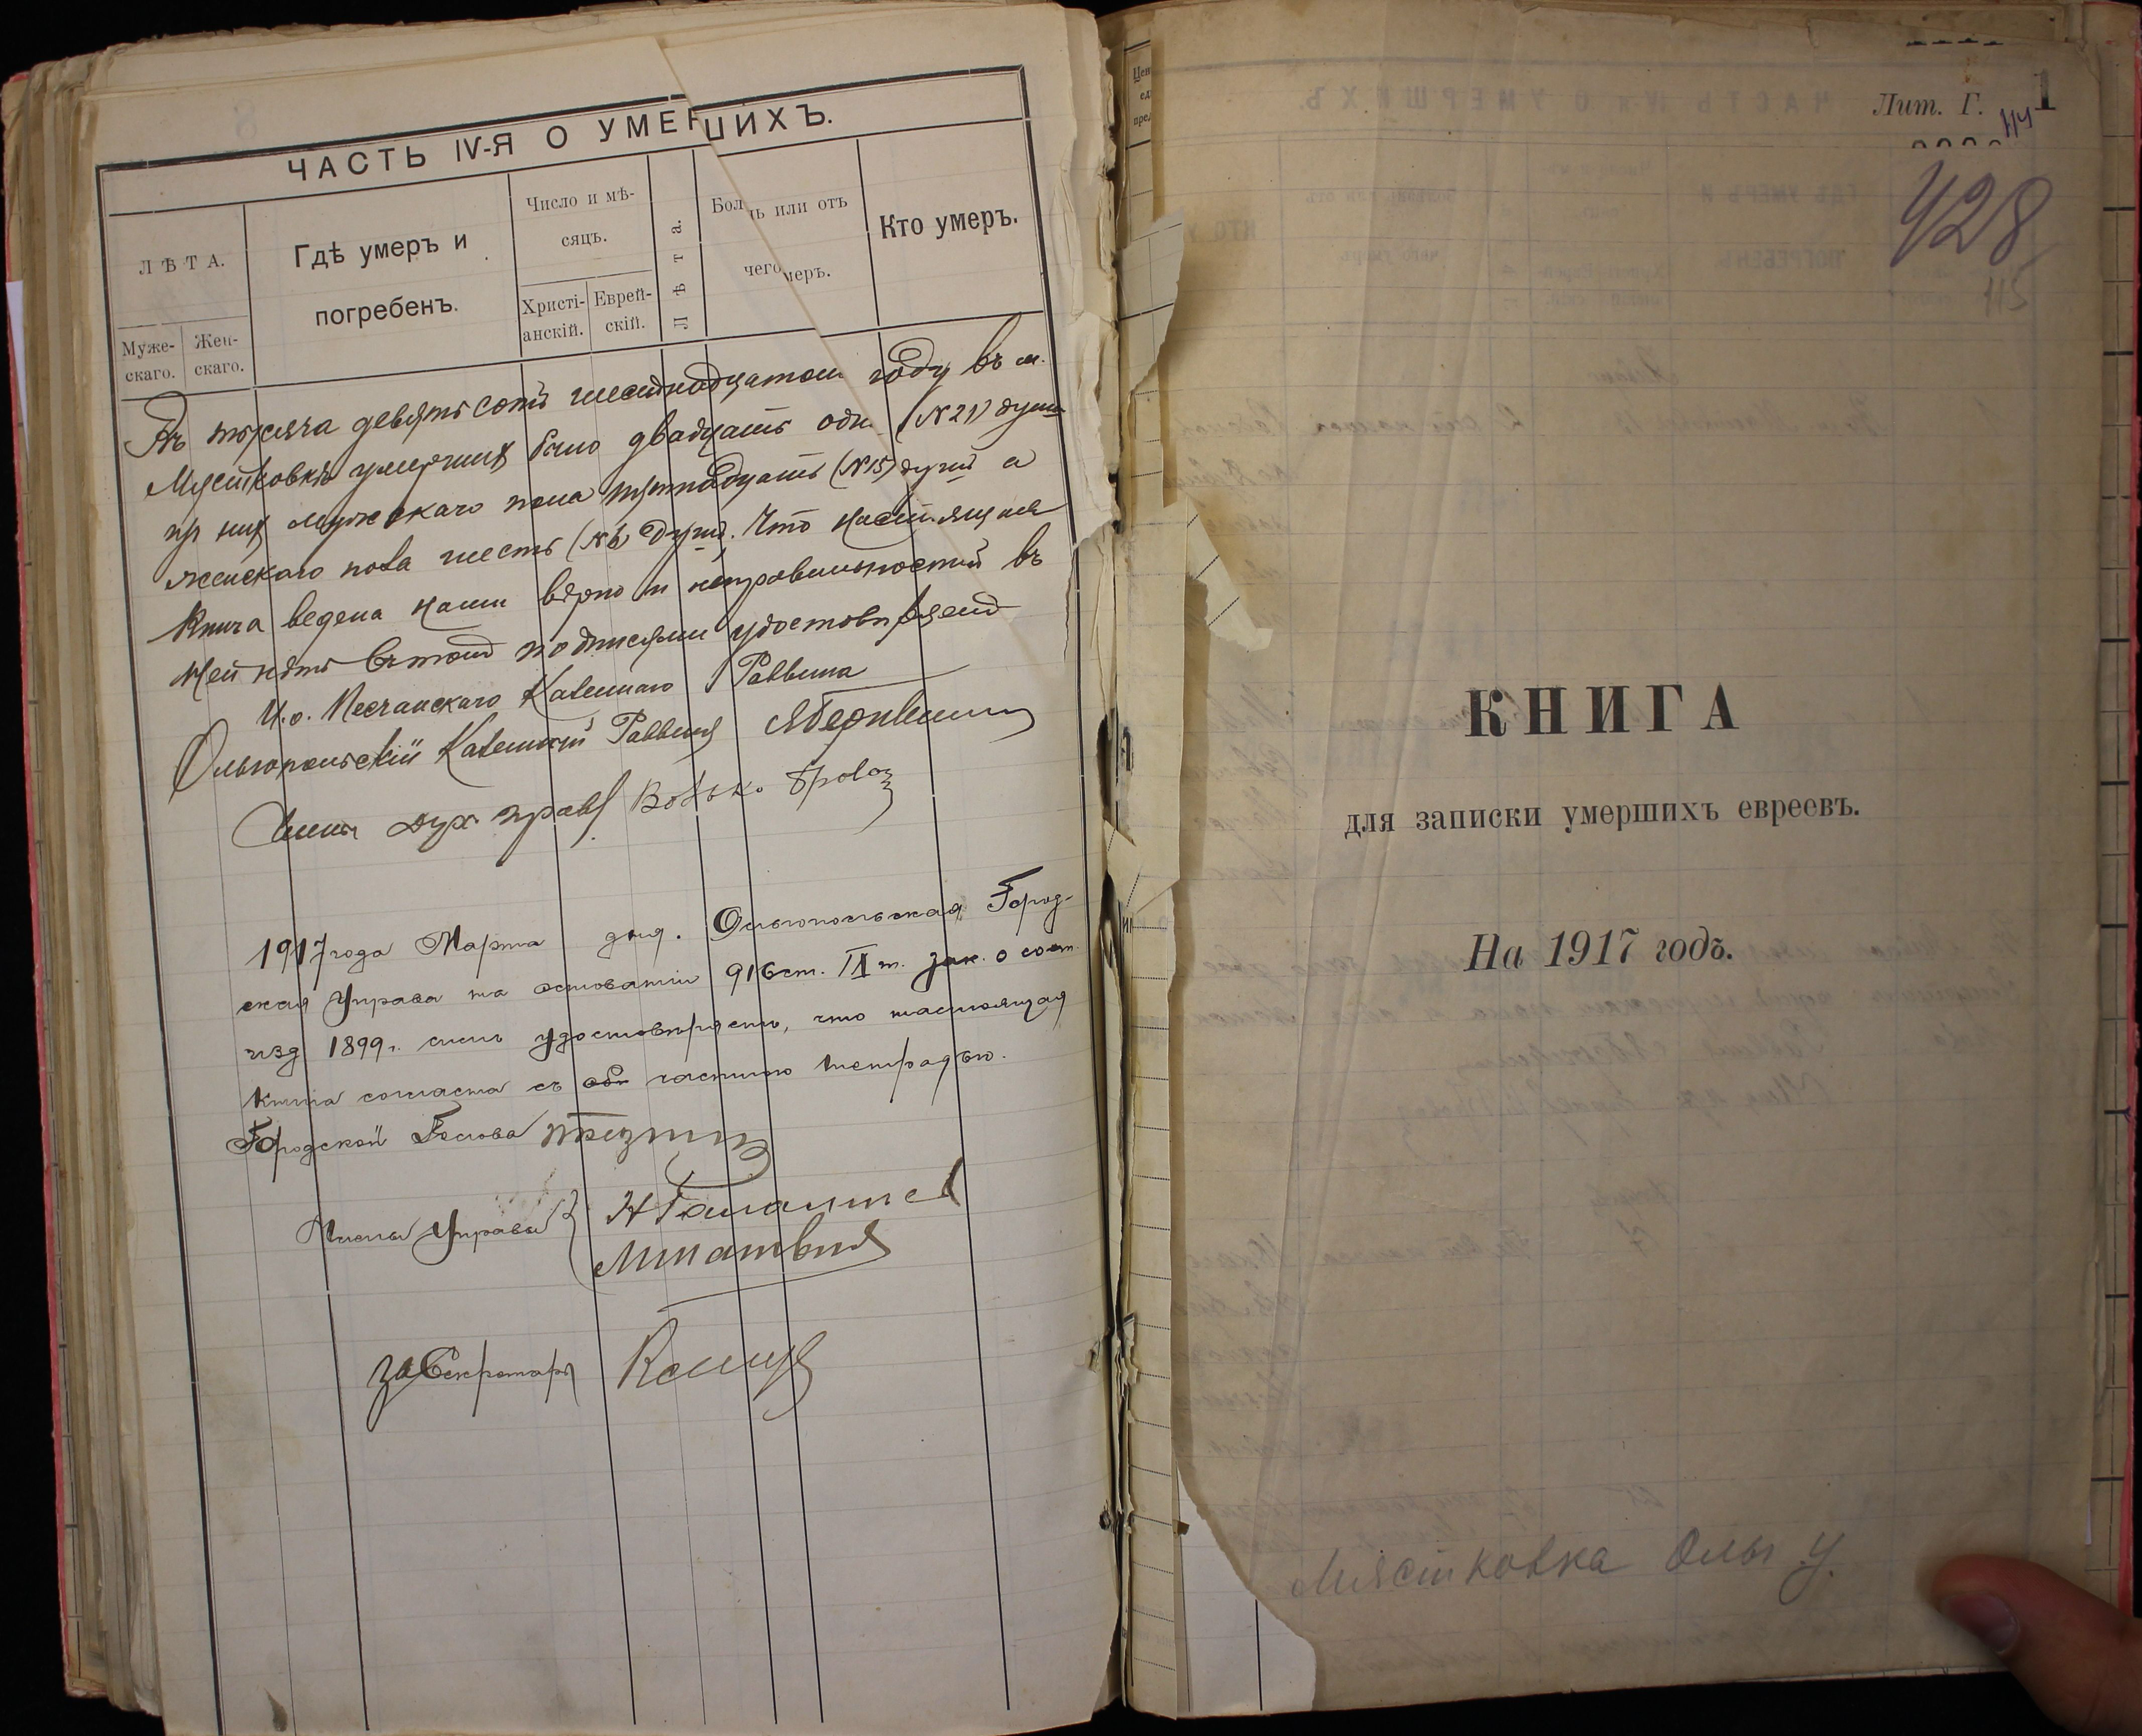 ЧАСТЬ IV-Я О УМЕРШИХЪ.
ЛѢТА.
Муже-
скаго.
Жен-
скаго.
Гдѣ умеръ и
погребенъ.
Число и мѣ-
сяцъ.
Христі-
анскій.
Еврей-
скій.
Лѣта.
Бол нь или отъ
чего меръ.
Кто умеръ.
Въ тысяча девятьсотъ шестнадцатом году въ м.
Мястковкѣ умерших было двадцать одн (N 21) душ
из них мужскаго пола пятнадцать (N 15) душъ а
женскаго пола шесть (N 6) душъ. Что настоящая
книга ведена нами вѣрно и неправильностей въ
ней нѣтъ въ томъ подписями удостовѣряемъ
И. о. Песчанскаго Казеннаго Раввина
Ольгопольскій Казенный Раввинъ
Членъ дух. правл. Волько
1917 года Марта дня. Ольгопольская Город-
ская Управа на основаніи 916 ст. IX т. зак. о сост.
изд 1899 г. симъ удостовѣряетъ, что настоящая
книга согласна съ частною тетрадью.
Городской Голова
Члены Управы
за Секретаря
Лит. Г.
1
114
428
115
КНИГА
для записки умершихъ евреевъ.
На 1917 годъ.
Мястковка Ольг у.